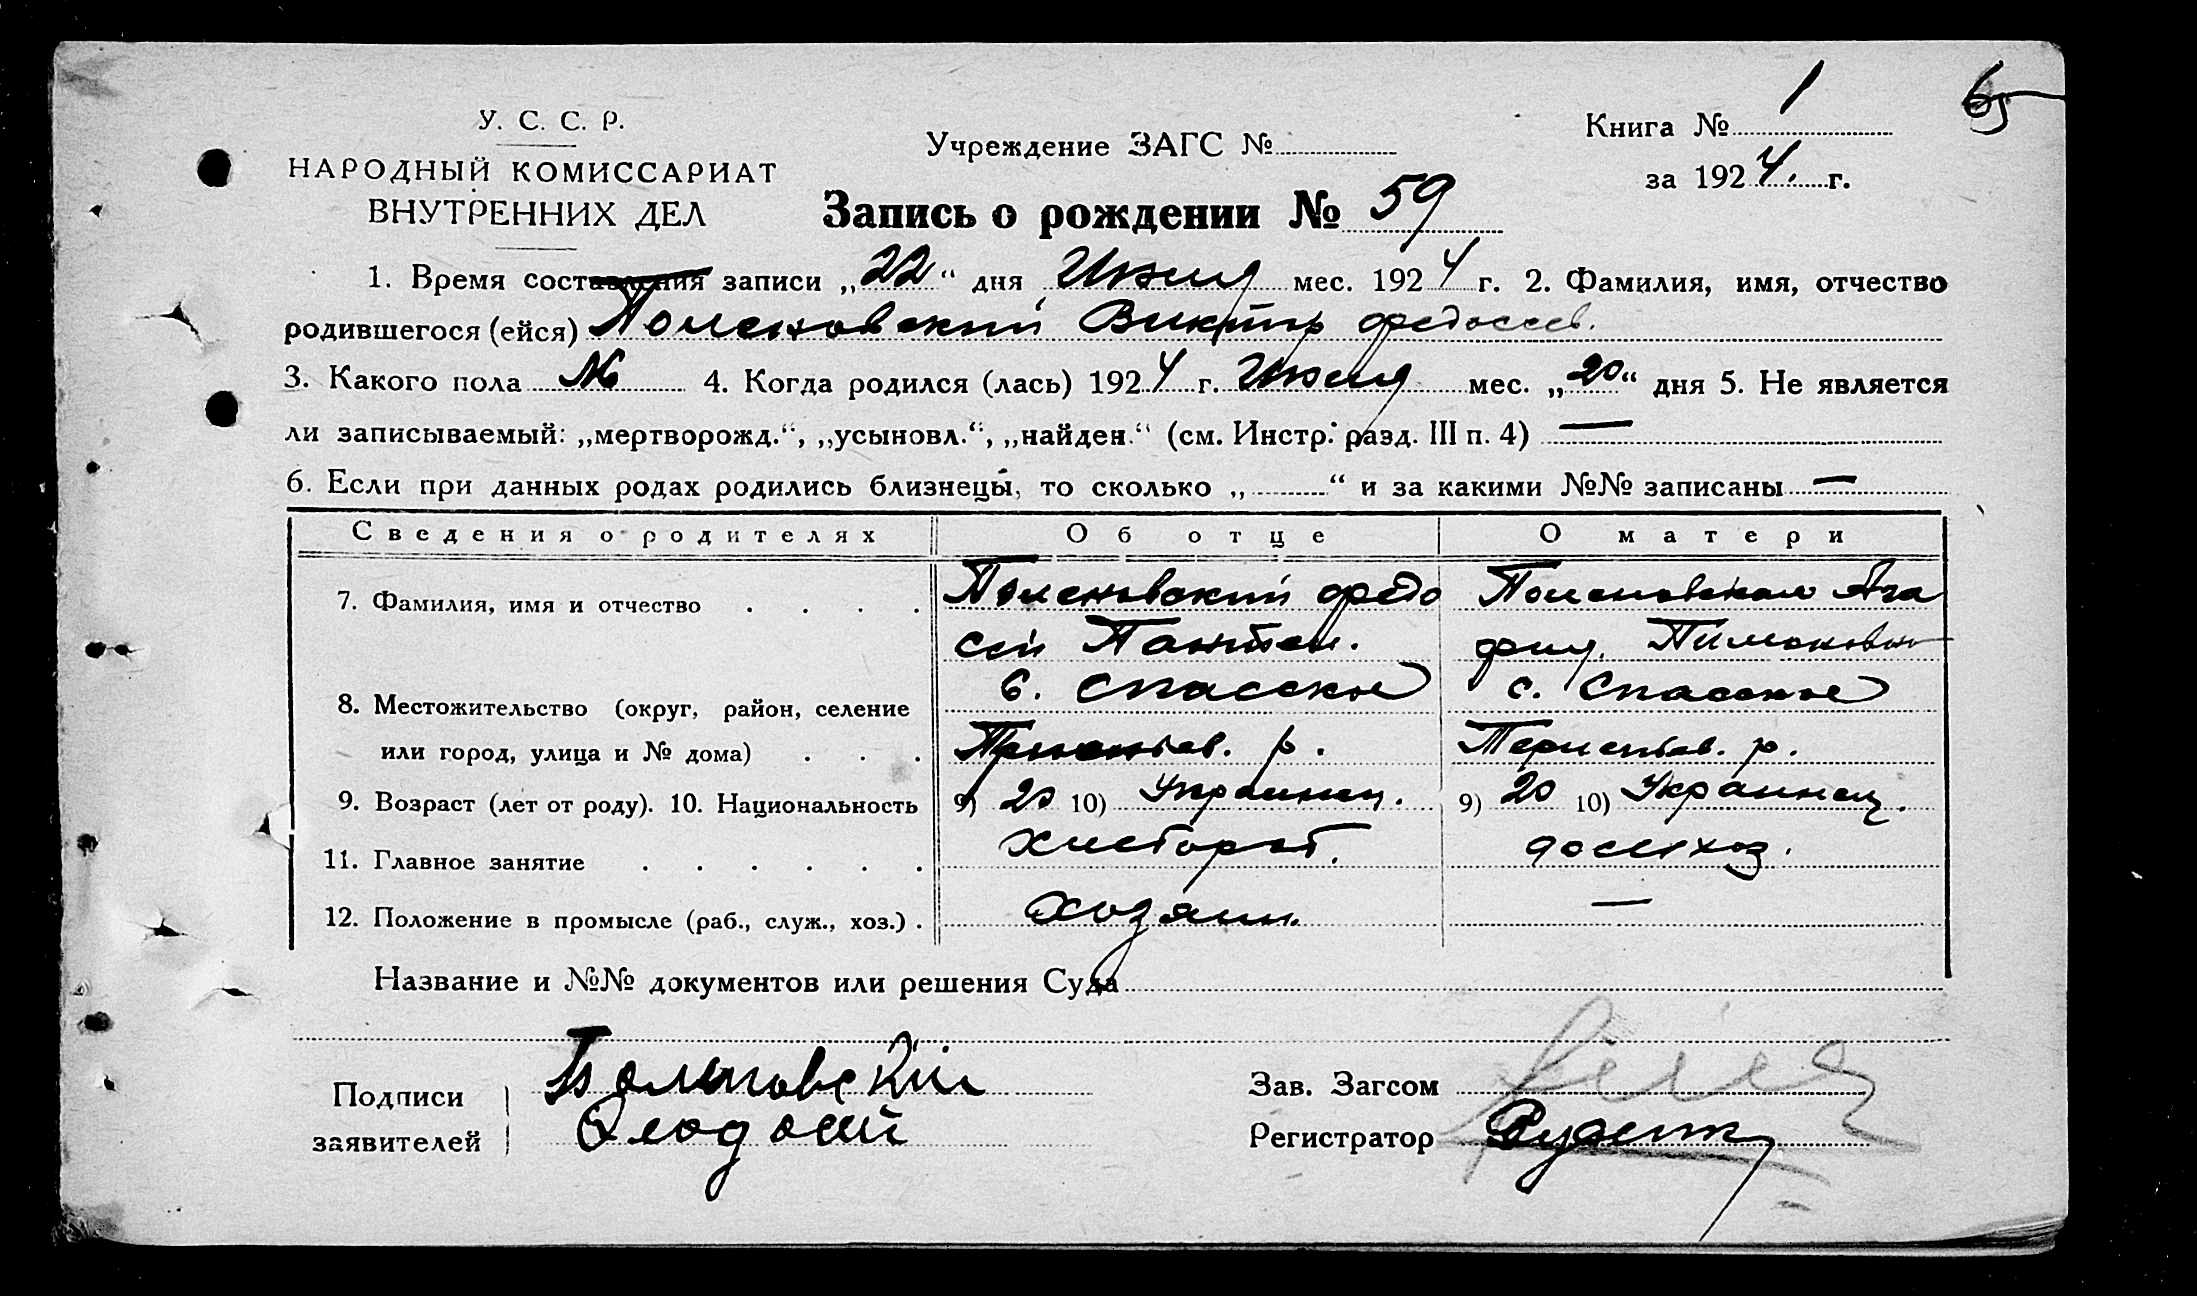 У. С. С. Р.
НАРОДНЫЙ КОМИССАРИАТ
ВНУТРЕННИХ ДЕЛ
Учреждение ЗАГС №
Книга № 1
65
за 1924 г.
Запись о рождении № 59
1. Время составления записи „22“ дня Июля мес. 1924 г. 2. Фамилия, имя, отчество
родившегося (ейся) Виктор Федосеев.
3. Какого пола М 4. Когда родился (лась) 1924 г. Июля мес. „20“ дня 5. Не является
ли записываемый: „мертворожд.“, „усыновл.“, „найден.“ (см. Инстр. разд. III п. 4) —
6. Если при данных родах родились близнецы, то сколько „ “ и за какими №№ записаны —
Сведения о родителях Об отце О матери
7. Фамилия, имя и отчество Федо Ага
сий Пантел. фия
с. Спасское с. Спасское
8. Местожительство (округ, район, селение
или город, улица и № дома) р. р.
9. Возраст (лет от роду). 10. Национальность 9) 20 10) Украинец. 9) 20 10) Украинец.
11. Главное занятие Хлебороб. домхоз.
12. Положение в промысле (раб., служ., хоз.) Хозяин —
Название и №№ документов или решения Суда
Подписи
заявителей
Феодосий
Зав. Загсом
Регистратор